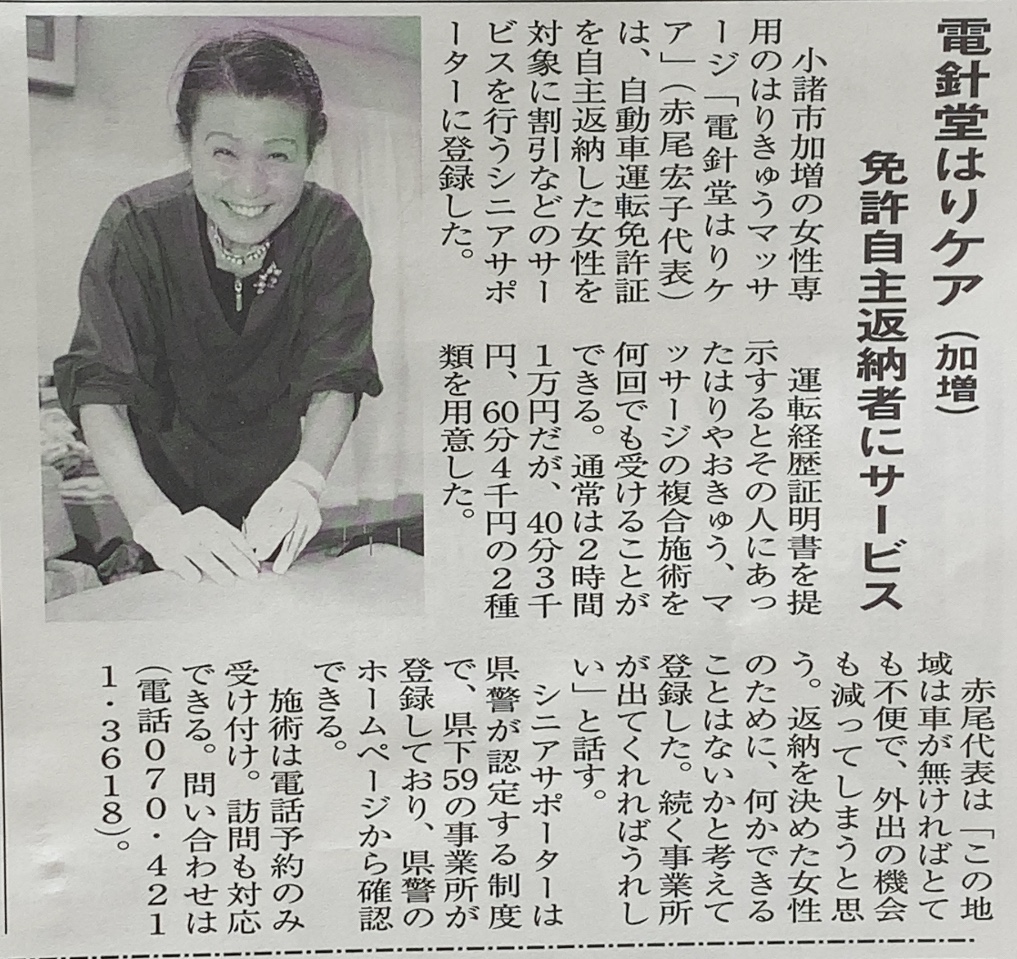 電針堂はりケア（加増）
免許自主返納者にサービス
小諸市加増の女性専
用のはりきゅうマッサ
ージ「電針堂はりケ
ア」（赤尾宏子代表）
は、自動車運転免許証
を自主返納した女性を
対象に割引などのサー
ビスを行うシニアサポ
ーターに登録した。
運転経歴証明書を提
示するとその人にあっ
たはりやおきゅう、マ
ッサージの複合施術を
何回でも受けることが
できる。通常は２時間
１万円だが、40分３千
円、60分４千円の２種
類を用意した。
赤尾代表は「この地
域は車が無ければとて
も不便で、外出の機会
も減ってしまうと思
う。返納を決めた女性
のために、何かできる
ことはないかと考えて
登録した。続く事業所
が出てくれればうれし
い」と話す。
シニアサポーターは
県警が認定する制度
で、県下59の事業所が
登録しており、県警の
ホームページから確認
できる。
施術は電話予約のみ
受け付け。訪問も対応
できる。問い合わせは
（電話０７０・４２１
１・３６１８）。